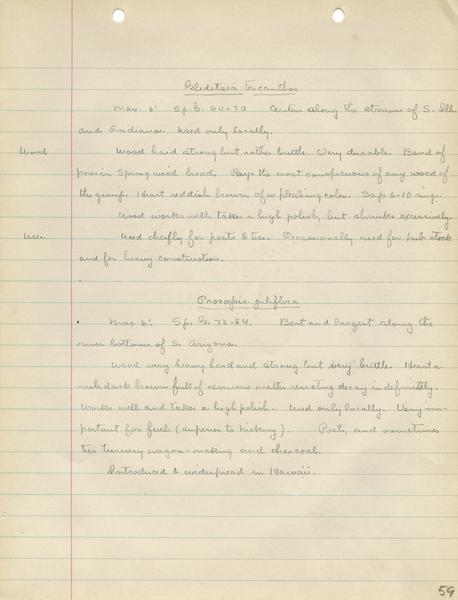 Gleditsia tricanthos
Max. 6' Sp. G. 64-70 Center along the streams of S. Ill.
and Indiana. Used only locally.
Wood Wood hard strong but rather brittle. Very durable. Band of
pores in Spring wood broad. Rays the most conspicuous of any wood of
the group. Heart reddish brown of a pleasing color. Sap 6-10 rings.
Wood works well, takes a high polish, but shrinks excessively.
Uses. Used chiefly for posts & ties. Occassionally used for hub stock
and for heavy construction.
Prosopis juliflora
Max 6'. Sp. G. 72-84. Best and largest along the
river bottoms of S. Arizona.
Wood very heavy hard and strong but very brittle. Heart a
rich dark brown full of resinous matter resisting decay indefinitely.
Works well and takes a high polish. Used only locally. Very im-
portant for fuel (superior to hickory). Posts, and sometimes
ties turnery wagon-making and charcoal.
Introduced & widespread in Hawaii.
59